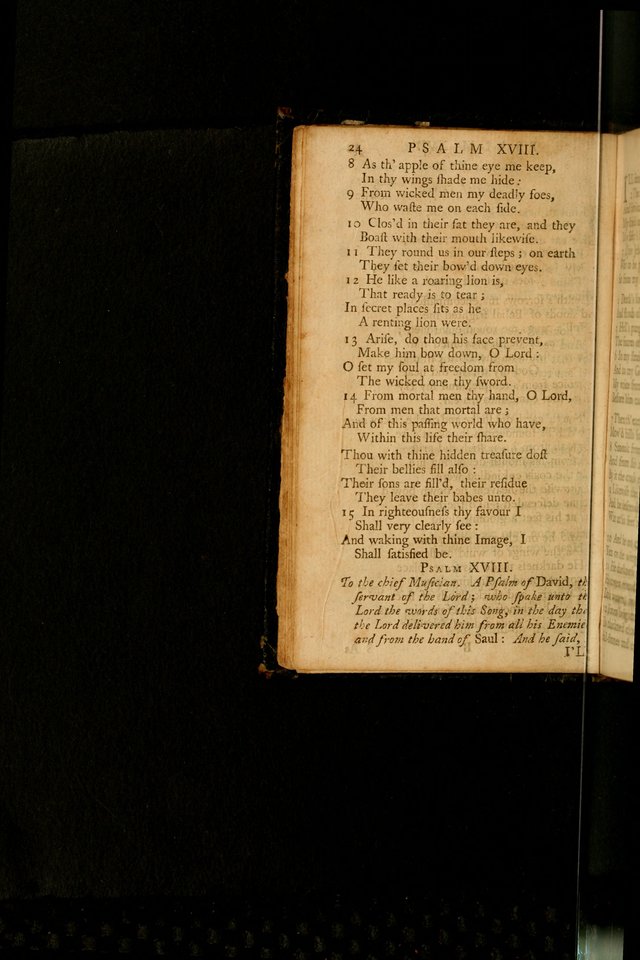 24 PSALM XVIII.
8 As th' apple of thine eye me keep,
In thy wings ſhade me hide:
9 From wicked men my deadly foes,
Who waſte me on each ſide.
10 Clos'd in their fat they are, and they
Boaſt with their mouth likewiſe.
11 They round us in our ſteps; on earth
They ſet their bow'd down eyes.
12 He like a roaring lion is,
That ready is to tear;
In ſecret places ſits as he
A renting lion were.
13 Ariſe, do thou his face prevent,
Make him bow down, O Lord:
O ſet my ſoul at freedom from
The wicked one thy ſword.
14 From mortal men thy hand, O Lord,
From men that mortal are;
And of this paſſing world who have,
Within this life their ſhare.
Thou with thine hidden treaſure doſt
Their bellies fill alſo:
Their ſons are fill'd, their reſidue
They leave their babes unto.
15 In righteouſneſs thy favour I
Shall very clearly ſee:
And waking with thine Image, I
Shall ſatisfied be.
PSALM XVIII.
To the chief Muſician. A Pſalm of David, th
ſervant of the Lord; who ſpake unto th
Lord the words of this Song, in the day tha
the Lord delivered him from all his Enemie
and from the hand of Saul: And he ſaid,
I'L